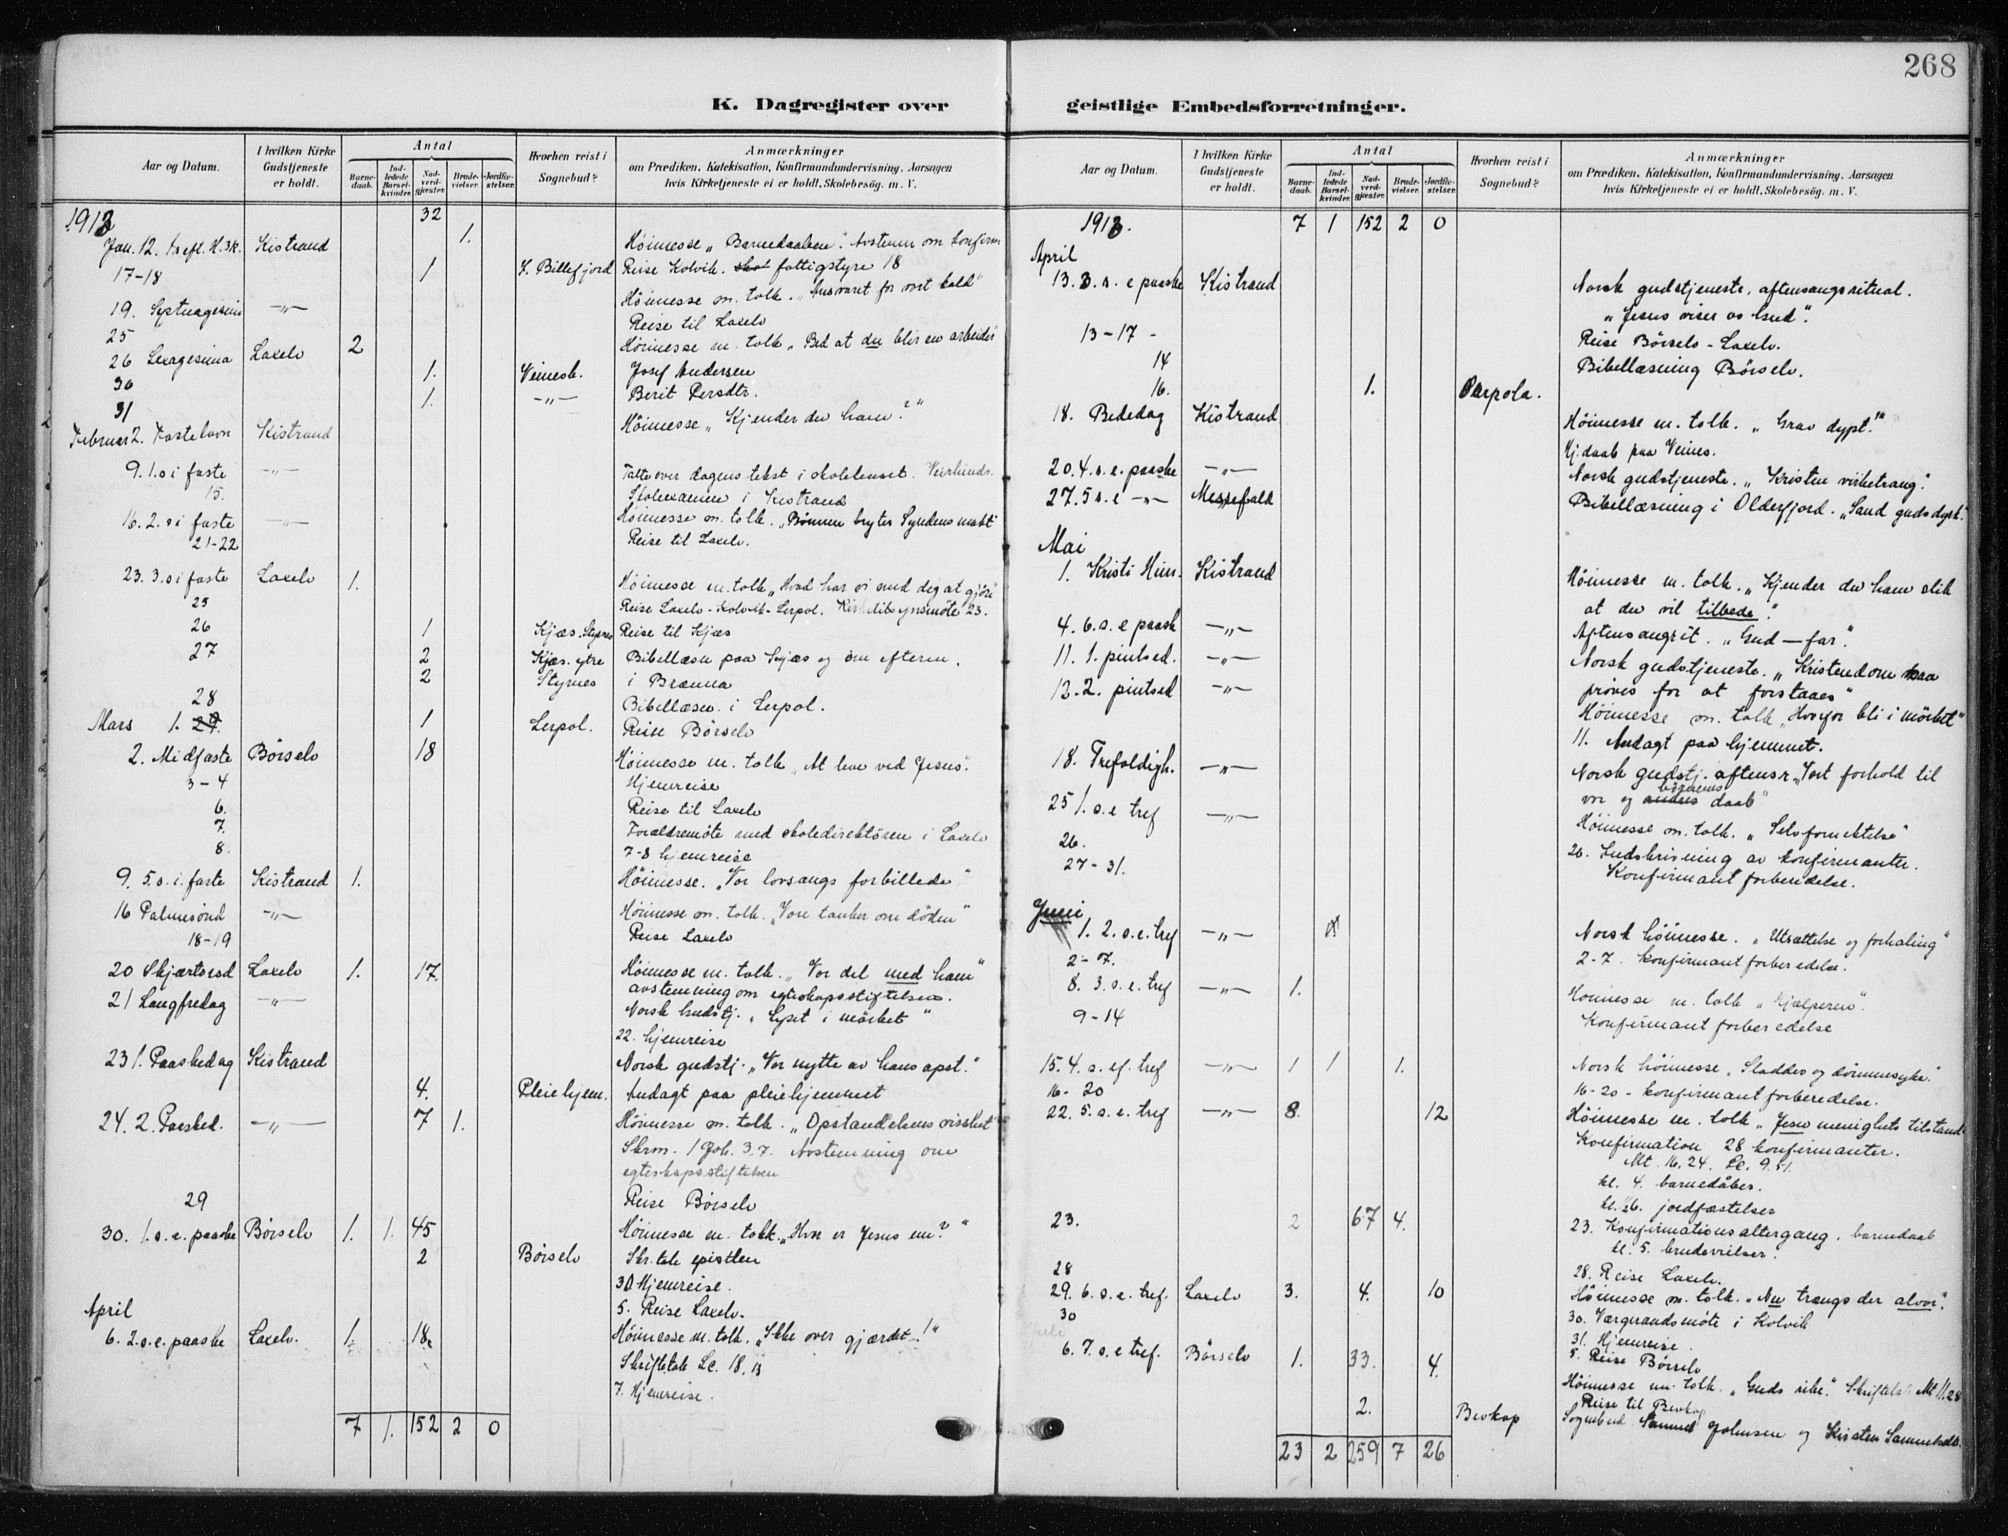 268
K. Dagregister over
Aar og Datum.
I hvilken Kirke Gudstjeneste er holdt.
Antal
Barnedaab.
Indledede Barselkvinder.
Nadverdgjester.
Brudevielser.
Jordfæstelser.
Hvorhen reist i Sognebud?
Anmærkninger
om Prædiken, Katekisation, Konfirmandundervisning, Aarsagen
hvis Kirketjeneste ei er holdt, Skolebesøg. m. V.
1913 32
Jan. 12. 1 s. eft. H. 3 k. Kistrand 1. Høimesse „Barnedaaben". Avstemn om
17-18 1 Billefjord Reise Kolvik. fattigstyre 18
19. Septuagesima —„— Høimesse m. tolk. „Ansvaret for vort kald"
25 Reise til Laxelv
26 Sexagesima Laxelv 2 Høimesse m. tolk „Bed at du blir en arbeider
30 1. Veinesb. Josef Andersen
31 1. —„— Berit Persdtr
Februar 2. Fastelavn Kistrand Høimesse „Kjender du ham?"
9. 1. s i faste —„— Talte over dagens tekst i skolehuset.
15. Skoleexamen i Kistrand
16. 2. s i faste —„— Høimesse m. tolk. „Bønnen bryter Syndens makt
21-22 Reise til Laxelv.
23. 3. s i faste Laxelv 1. Høimesse m. tolk „Hvad har vi med dig at gjøre
25 Reise Laxelv-Kolvik-Lerpol. Kirketilsynsmøte 23.
26 1 Kjæs. Reise til Kjæs
27 2 Kjæs. ytre Bibellæsn paa Kjæs og om efterm.
2 Styrnes i Brenna
28 Bibellæsn. i Lerpol.
Mars 1. 1 Lerpol. Reise Børselv
2. Midfaste Børselv 18 Høimesse m. tolk „At leve ved Jesus".
3-4 Hjemreise
6. Reise til Laxelv
7. Forældremøte med skoledirektøren i Laxelv
8. 7-8 hjemreise
9. 5. s. i. faste Kistrand 1. Høimesse. „Vor lovsangs forbillede"
16 Palmesønd —„— Høimesse m. tolk. „Vore tanker om døden"
18-19 Reise Laxelv
20 Skjærtorsd Laxelv 1. 17. Høimesse m. tolk. „Vor del med ham"
avstemning om egteskapsstiftelsen.
21 Langfredag —„— Norsk Gudstj. „Lyset i mørket"
22. hjemreise
23 1. Paaskedag Kistrand Norsk gudstj. „Vor nytte av hans opst."
4. Pleiehjem. Andagt paa pleiehjemmet
24. 2. Paasked. —„— 7 1. Høimesse m. tolk. „Opstandelsens visshet"
Skrm. 1 Joh. 3,7. Avstemning om
egteskapsstiftelsen
29 Reise Børselv
30. 1. s. e. paaske Børselv 1. 1. 45 Høimesse m. tolk. „Hvor er Jesus nu?"
2 Børselv Skr. tale epistlen
30 Hjemreise.
April 5. Reise Laxelv.
6. 2. s. e. paaske Laxelv. 1. 18 Høimesse m. tolk. „Ikke over gjærdet!"
Skriftetale Lc. 18, 13
7. Hjemreise.
7 1. 152 2 0
geistlige Embedsforretninger.
Aar og Datum.
I hvilken Kirke Gudstjeneste er holdt.
Antal
Barnedaab.
Indledede Barselkvinder.
Nadverdgjester.
Brudevielser.
Jordfæstelser.
Hvorhen reist i Sognebud?
Anmærkninger
om Prædiken, Katekisation, Konfirmandundervisning, Aarsagen
hvis Kirketjeneste ei er holdt, Skolebesøg. m. V.
1913. 7 1 152 2 0
April
13. 3. s. e paaske Kistrand Norsk gudstjeneste. aftensangsritual.
„Jesus viser os Gud".
13-17 - Reise Børselv-Laxelv.
14 Bibellæsning Børselv.
16. 1.
18. Bededag Kistrand Høimesse m. tolk. „Grav dypt!"
Hj. daab paa Veines.
20. 4. s. e. paaske —„— Norsk gudstjeneste. „Kristen virketrang".
27. 5 s. e —„— Messefald Bibellæsning i Olderfjord. „Sand gudsdyrk."
Mai
1. Kristi Him. Kistrand Høimesse m. tolk. „Kjender du ham slik
at du vil tilbede".
4. 6. s. e paask —„— Aftensangrit. „Gud - far".
11. 1. pintsed. —„— Norsk gudstjeneste. „Kristendom maa
prøves for at forstaaes"
12. 2. pintsed —„— Høimesse m. tolk „Hvorfor bli i mørket"
11. Andagt paa hjemmet.
18. Trefoldigh. —„— Norsk gudstj. aftensr. „Vort forhold til
vor og børnenes daab"
25 1. s. e tref —„— Høimesse m. tolk. „Selvfornektelse"
26. 26. Indskrivning av konfirmanter.
27-31. Konfirmantforberedelse.
Juni
1. 2. s. e. tref —„— Norsk høimesse. „Utsættelse og forhaling"
2-7. 2-7. konfirmantforberedelse.
8. 3. s. e. tref —„— 1. Høimesse m. tolk „Hjælperen".
9-14 Konfirmantforberedelse
15. 4. s. ef. tref —„— 1 1 1. Norsk høimesse. „Sladder og dømmesyke".
16-20 16-20 - konfirmantforberedelse.
22. 5. s. e. tref —„— 8. 12 Høimesse m. tolk „Jesu menighets tilstand
Konfirmation 28 konfirmanter.
Mt. 16,24. Lc. 9.51.
kl. 4. barnedåber.
kl. 26. jordfæstelser
23. 2 67 4. 23. Konfirmationsaltergang. barnedaab
kl. 5. brudevielser.
28 28. Reise Laxelv.
29. 6. s. e. tref. Laxelv 3. 4. 10 Høimesse m. tolk. „Nu trængs der alvor".
30 30. Værgeraadsmøte i Kolvik
31. Hjemreise.
5. Reise Børselv
6. 7. s. e tref. Børselv 1. 33. 4. Høimesse m. tolk. „Guds rike". Skriftet. Mt 11.28
2. Bevkop Reise til Bevkop
Sognebud. Samuel Johnsen og Kirsten
23 2 259 7 26